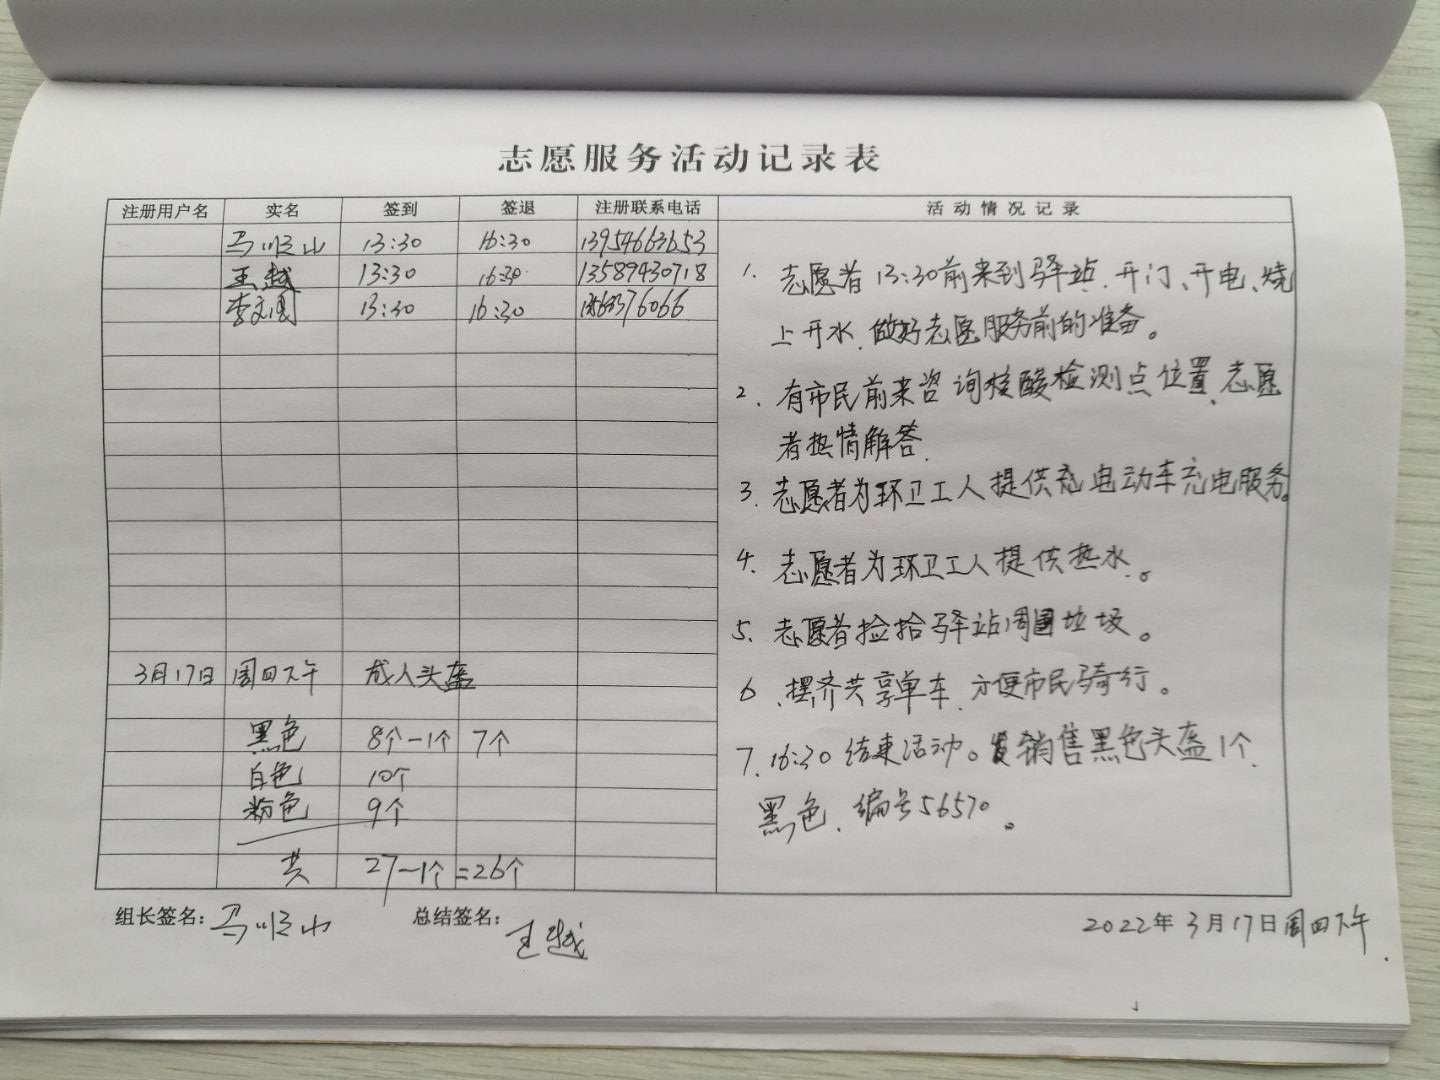 志愿服务活动记录表
注册用户名 实名 签到 签退 注册联系电话 活动情况记录
马顺山 13:30 16:30 13954663653
王越 13:30 16:30 13589430718
13:30 16:30
1. 志愿者13:30前来到驿站.开门、开电、烧
上开水.做好志愿服务前的准备。
2. 有市民前来咨询核酸检测点位置.志愿
者热情解答.
3. 志愿者为环卫工人提供充电动车充电服务。
4. 志愿者为环卫工人提供热水.。
5. 志愿者捡拾驿站周围垃圾。
6. 摆齐共享单车.方便市民骑行。
7. 16:30结束活动。销售黑色头盔1个.
黑色.编号56570。
3月17日 周四下午 成人头盔
黑色 8个-1个 7个
白色 10个
粉色 9个
共 27-1个=26个
组长签名:马顺山 总结签名:王越
2022年3月17日周四下午.